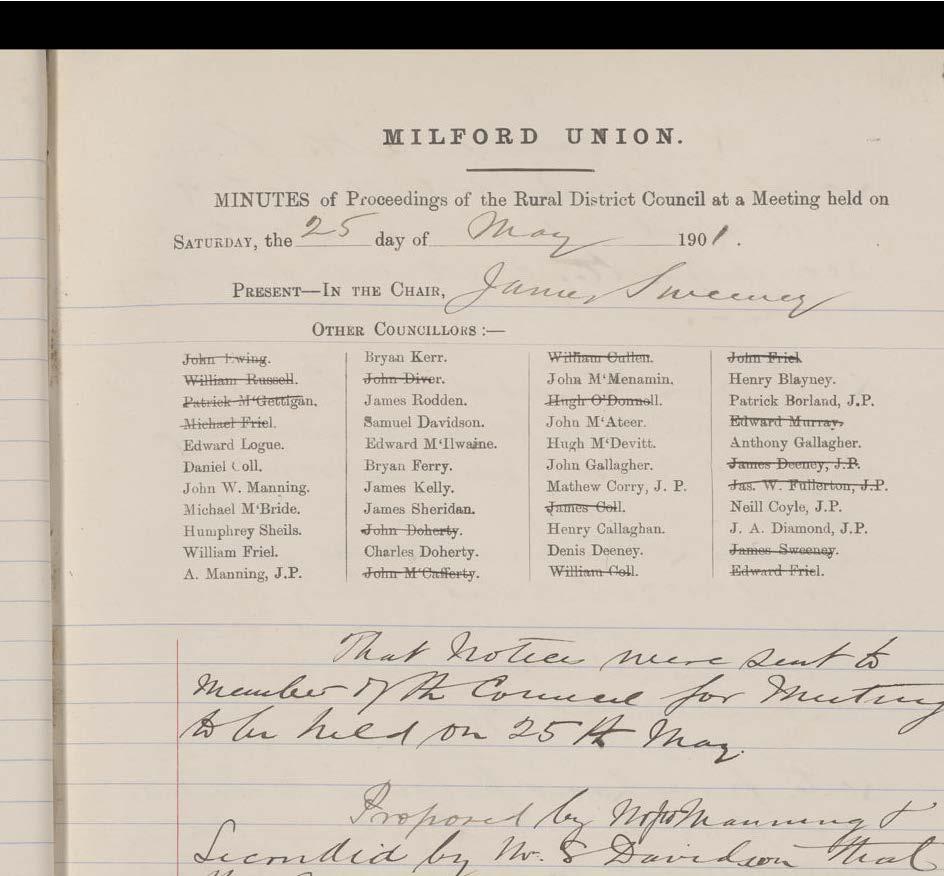 MILFORD UNION.
MINUTES of Proceedings of the Rural District Council at a Meeting held on
SATURDAY, the 25 day of May 1901.
PRESENT—IN THE CHAIR, James Sweeney
OTHER COUNCILLORS :—
John Ewing.
William Russell.
Patrick M'Gettigan.
Michael Friel.
Edward Logue.
Daniel Coll.
John W. Manning.
Michael M'Bride.
Humphrey Sheils.
William Friel.
A. Manning, J.P.
Bryan Kerr.
John Diver.
James Rodden.
Samuel Davidson.
Edward M'Ilwaine.
Bryan Ferry.
James Kelly.
James Sheridan.
John Doherty.
Charles Doherty.
John M'Cafferty.
William Cullen.
John M'Menamin.
Hugh O'Donnell.
John M'Ateer.
Hugh M'Devitt.
John Gallagher.
Mathew Corry, J. P.
James Coll.
Henry Callaghan.
Denis Deeney.
William Coll.
John Friel
Henry Blayney.
Patrick Borland, J.P.
Edward Murray.
Anthony Gallagher.
James Deeney, J.P.
Jas. W. Fullerton, J.P.
Neill Coyle, J.P.
J. A. Diamond, J.P.
James Sweeney.
Edward Friel.
That Notices were sent to
Member of the Council for Meeting
to be held on 25th May.
Proposed by Manning &
Seconded by Mr. S Davidson that